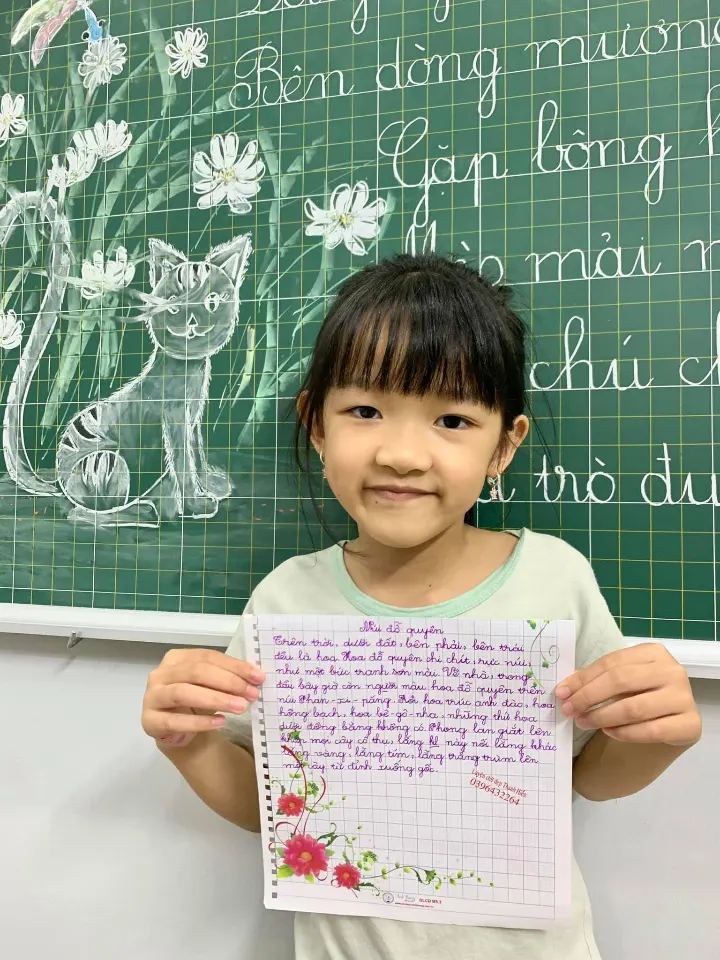 Bên dòng mương
Gặp bông
mải
chú
trò
Núi đỗ quyên
Trên trời, dưới đất, bên phải, bên trái
đều là hoa. Hoa đỗ quyên chi chít, rực núi,
như một bức tranh sơn màu. Về nhà, trong
đầu bây giờ còn nguyên màu hoa đỗ quyên trên
núi Phan-xi-păng. Rồi hoa trúc anh đào, hoa
hồng bạch, hoa bê-gô-nha, những thứ hoa
dưới đồng bằng không có. Phong lan giắt lên
khắp mọi cây cổ thụ, lẵng này nối lẵng khác
lẵng vàng, lẵng tím, lẵng trắng trùm lên
mọi cây từ đỉnh xuống gốc.
Luyện chữ đẹp Thanh Hiền
0396432264